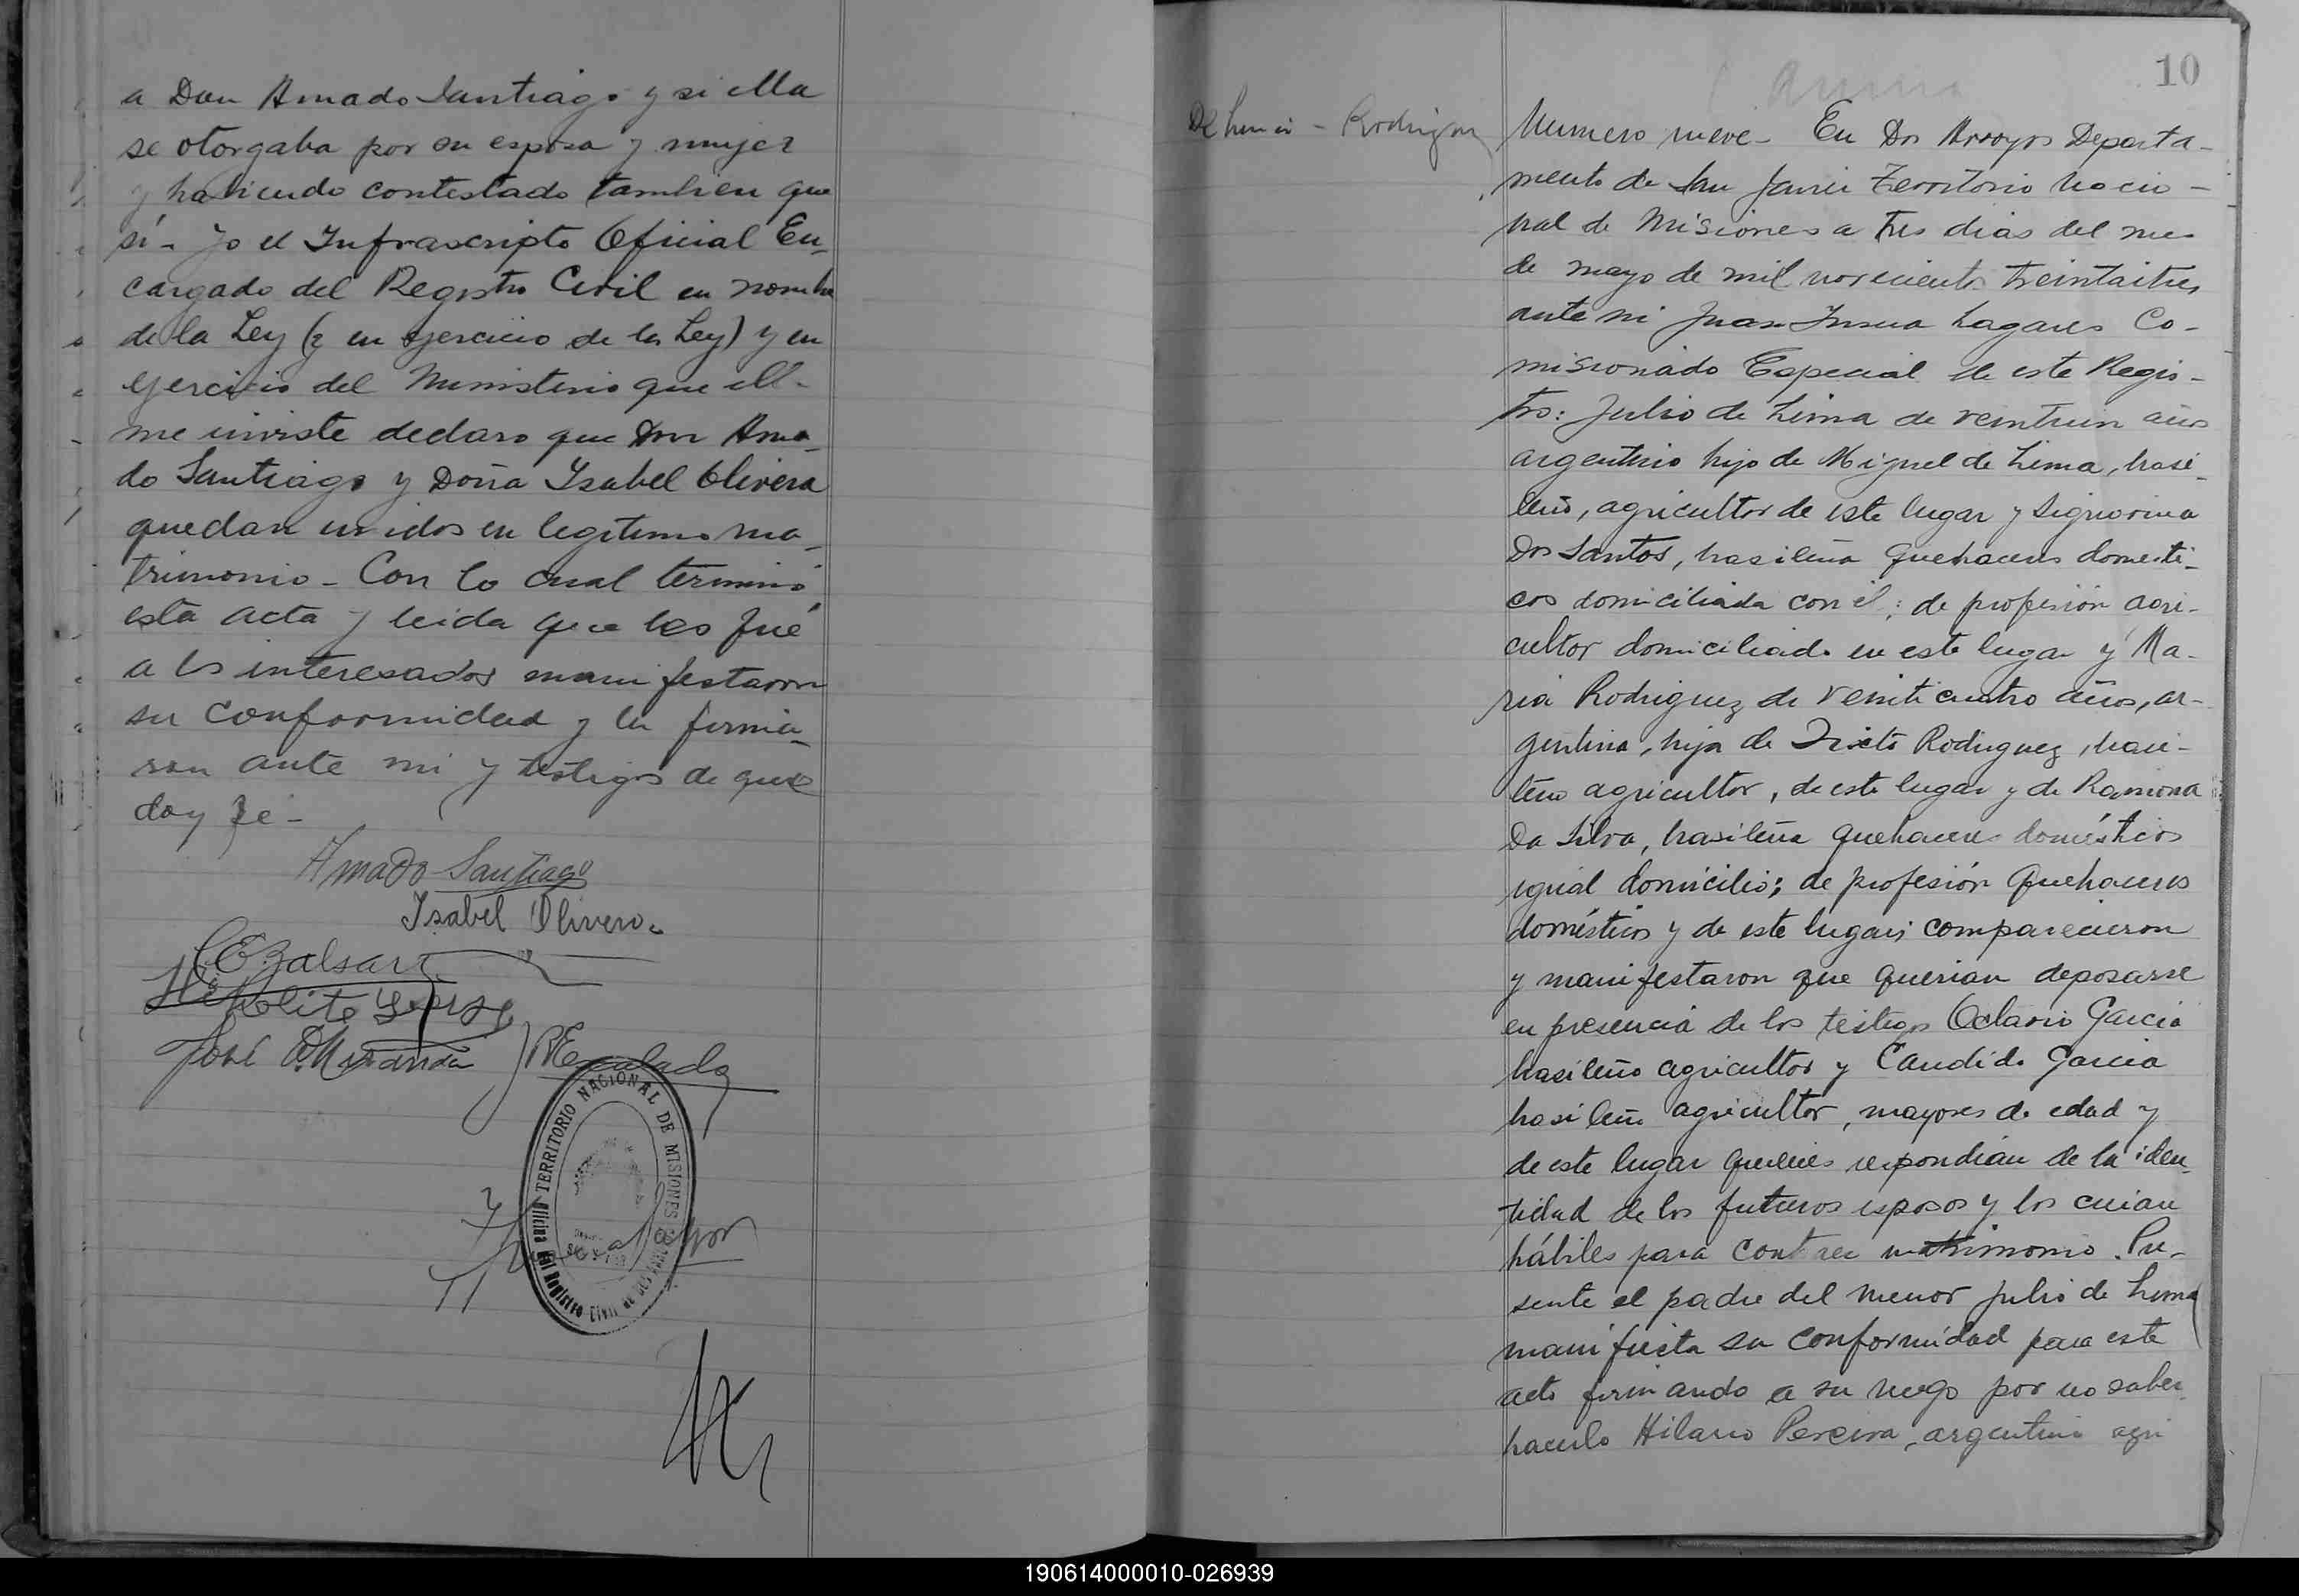 a Don Amado Santiago y si ella
se otorgaba por su esposa y mujer
y habiendo contestado tambien que
sí - Yo el Infrascripto Oficial En-
cargado del Registro Civil en nombre
de la Ley (y en ejercicio de la Ley) y en
ejercicio del Ministerio que ella
me inviste declaro que Don Ama-
do Santiago y Doña Ysabel Olivera
quedan unidos en legitimo ma-
trimonio - Con lo cual terminó
esta acta y leida que les fué
a los interesados manifestaron
su conformidad y la firma-
ron ante mi y testigos de que
doy fé -
Amado Santiago
Isabel Olivera
José A. Miranda
TERRITORIO NACIONAL DE MISIONES
Oficina del Registro Civil de
10
De Lima - Rodriguez
Numero nueve - En Dos Arroyos Departa-
mento de San Javier Territorio Nacio-
nal de Misiones a tres dias del mes
de mayo de mil novecientos treintaitres
ante mi Juan Insua Lagares Co-
misionado Especial de este Regis-
tro: Julio de Lima de veintiun años
argentino hijo de Miguel de Lima, brasi-
leño, agricultor de este lugar y Signorina
Dos Santos, brasileña quehaceres domesti-
cos domiciliada con él; de profesión agri-
cultor domiciliado en este lugar y Ma-
ria Rodriguez de veinticuatro años, ar-
gentina, hija de Rodriguez, brasi-
leño agricultor, de este lugar y de Ramona
Da Silva, brasileña quehaceres domésticos
igual domicilio; de profesión quehaceres
domésticos y de este lugar; comparecieron
y manifestaron que querian deposarse
en presencia de los testigos Octavio Garcia
brasileño agricultor y Candido Garcia
brasileño agricultor, mayores de edad y
de este lugar quienes respondian de la iden-
tidad de los futuros esposos y los creian
hábiles para contraer matrimonio. Pre-
sente el padre del menor Julio de Lima
manifiesta su conformidad para este
acto firmando a su ruego por no saber
hacerlo Hilario Pereira, argentino agri
190614000010-026939